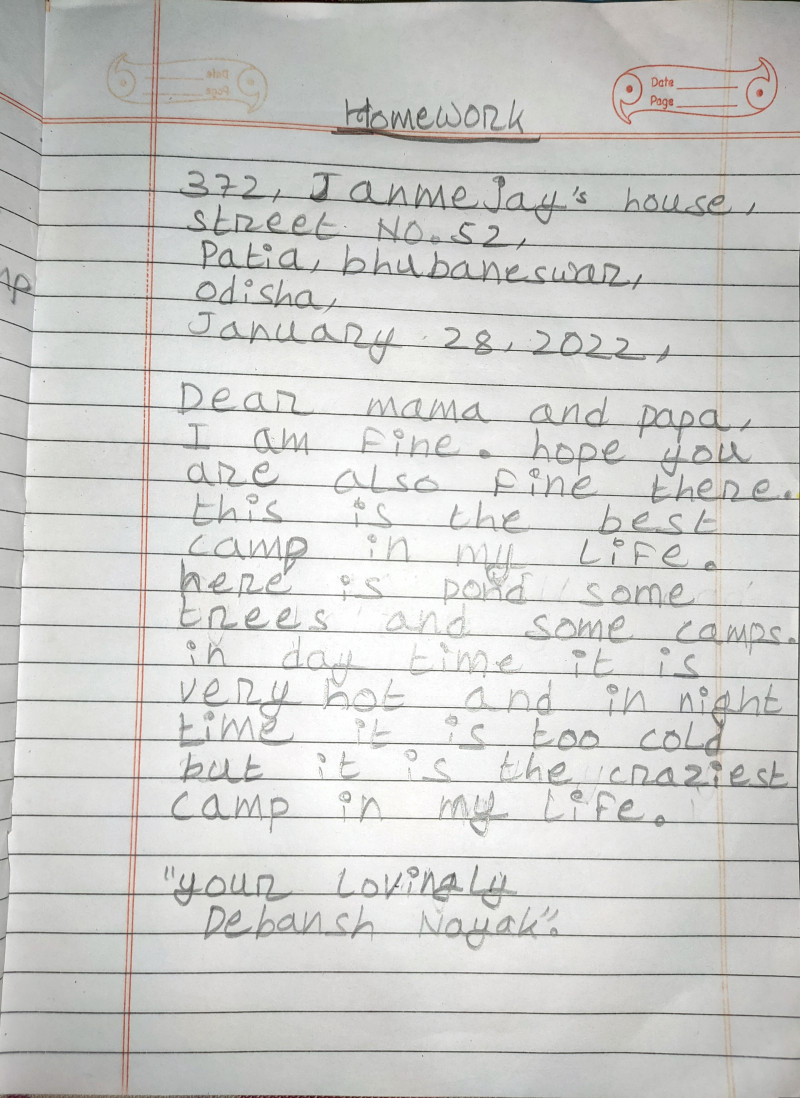 Date
Page
Homework
372, Janmejay's house,
street No. 52,
Patia, bhubaneswar,
odisha,
January 28, 2022,
Dear mama and papa,
I am Fine. hope you
are also Fine there.
this is the best
camp in my Life.
here is pond some
trees and some camps.
in day time it is
very hot and in night
time it is too cold
but it is the craziest
camp in my Life.
"your Lovingly
Debansh Nayak".